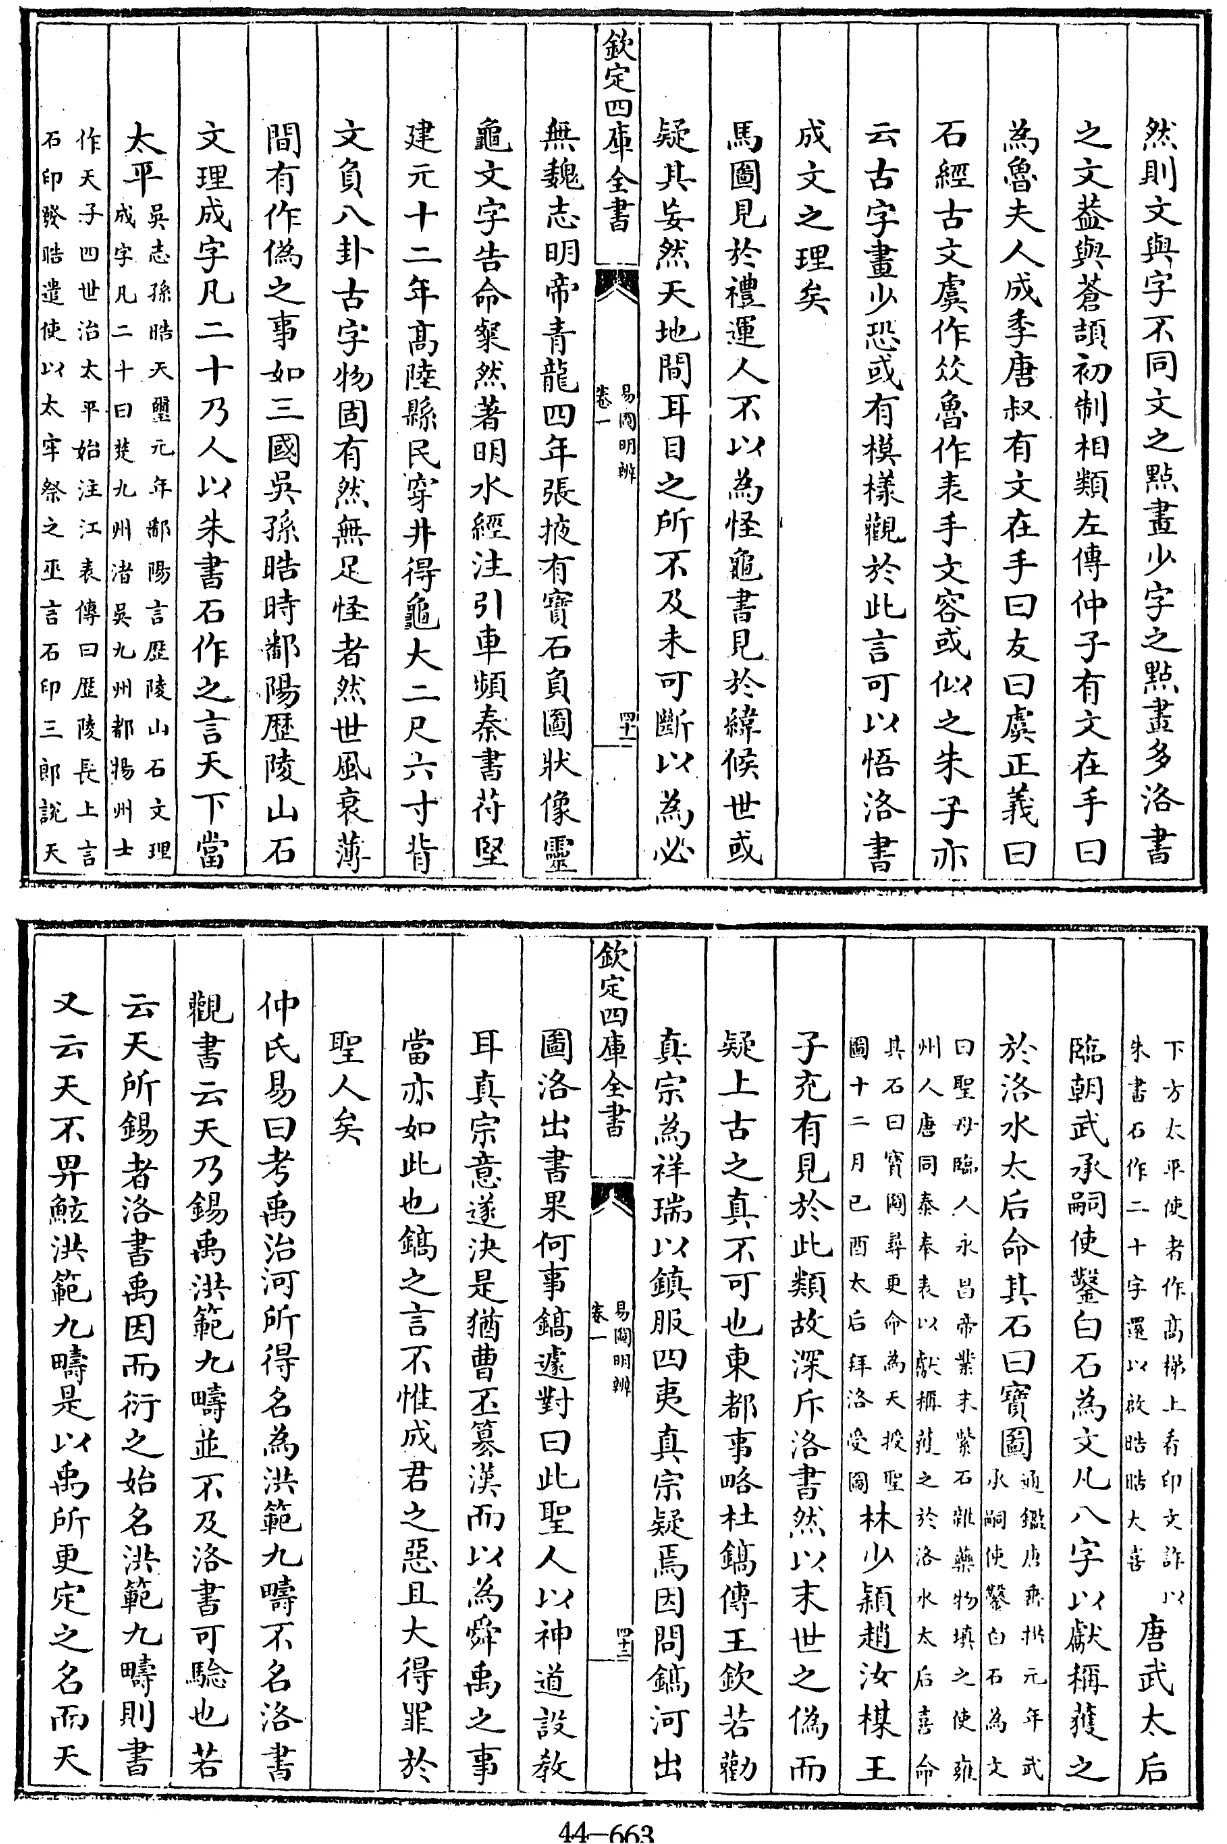 然則文與字不同文之點畫少字之點畫多洛書
之文葢與蒼頡初制相類左傳仲子有文在手曰
為魯夫人成季唐叔有文在手曰友曰虞正義曰
石經古文虞作㕕魯作表手文容或似之朱子亦
云古字畫少恐或有模樣觀於此言可以悟洛書
成文之理矣
馬圖見於禮運人不以為怪龜書見於緯候世或
疑其妄然天地間耳目之所不及未可斷以為必
欽定四庫全書
易圖明辨
卷一
四十一
無魏志明帝青龍四年張掖有寶石負圖狀像靈
龜文字告命粲然著明水經注引車頻秦書苻堅
建元十二年高陸縣民穿井得龜大二尺六寸背
文負八卦古字物固有然無足怪者然世風衰薄
間有作偽之事如三國吳孫晧時鄱陽歷陵山石
文理成字凡二十乃人以朱書石作之言天下當
太平
吳志孫晧天璽元年鄱陽言歷陵山石文理
成字凡二十曰楚九州渚吳九州都揚州士
作天子四世治太平始注江表傳曰歷陵長上言
石印發晧遣使以太牢祭之巫言石印三郎說天
下方太平使者作高梯上看印文詐以
朱書石作二十字還以啟晧晧大喜
唐武太后
臨朝武承嗣使鑿白石為文凡八字以獻稱獲之
於洛水太后命其石曰寶圖
通鑑唐垂拱元年武
承嗣使鑿白石為文
曰聖母臨人永昌帝業末紫石雜藥物填之使雍
州人唐同泰奉表以獻稱獲之於洛水太后喜命
其石曰寶圖尋更命為天授聖
圖十二月己酉太后拜洛受圖
林少穎趙汝楳王
子充有見於此類故深斥洛書然以末世之偽而
疑上古之真不可也東都事略杜鎬傳王欽若勸
真宗為祥瑞以鎮服四夷真宗疑焉因問鎬河出
欽定四庫全書
易圖明辨
卷一
四十二
圖洛出書果何事鎬遽對曰此聖人以神道設教
耳真宗意遂決是猶曹丕篡漢而以為舜禹之事
當亦如此也鎬之言不惟成君之惡且大得罪於
聖人矣
仲氏易曰考禹治河所得名為洪範九疇不名洛書
觀書云天乃錫禹洪範九疇並不及洛書可驗也若
云天所錫者洛書禹因而衍之始名洪範九疇則書
又云天不畀鯀洪範九疇是以禹所更定之名而天
44-663